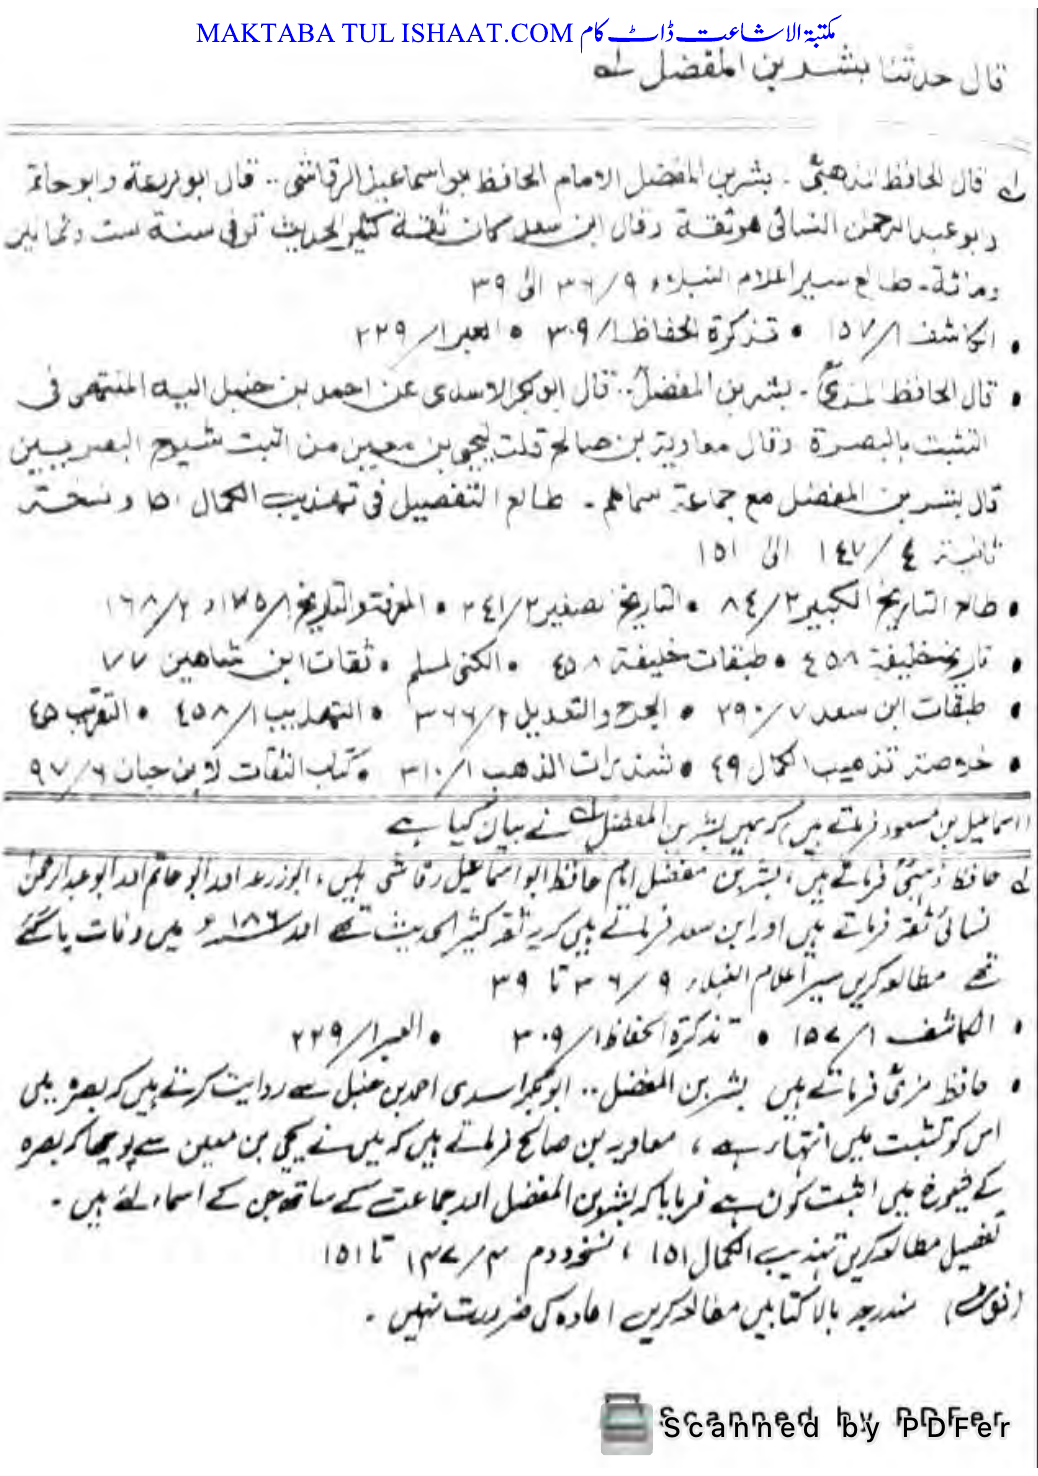 MAKTABA TUL ISHAAT.COM مکتبة الاشاعت ڈاٹ کام
قال حدثنا بشر بن المفضل لـه
لـه قال الحافظ الذهبیؒ ۔ بشر بن المفضل الامام الحافظ ابو اسماعیل الرقاشی .. قال ابو زرعة و ابو حاتم
و ابو عبد الرحمٰن النسائی هو ثقة و قال ابن سعد کان ثقة کثیر الحدیث توفی سنة ست و ثمانین
و مائة ۔ طالع سیر اعلام النبلاء ۹/۳۶ الیٰ ۳۹
• الکاشف ۱/۱۵۷ • تذکرة الحفاظ ۱/۳۰۹ • العبر ۱/۲۲۹
• قال الحافظ المزیؒ ۔ بشر بن المفضل .. قال ابو بکر الاسدی عن احمد بن حنبل الیه المنتهی فی
التثبت بالبصرة و قال معاویة بن صالح قلت لیحیی بن معین من اثبت شیوخ البصریین
قال بشر بن المفضل مع جماعة سماهم ۔ طالع التفصیل فی تهذیب الکمال ۱۵۱ و نسخة
ثانیة ٤/۱٤۷ الیٰ ۱۵۱
• طالع التاریخ الکبیر ۲/۸٤ • التاریخ الصغیر ۲/۲٤۱ • المعرفة و التاریخ ۱/۱۷۵ و ۲/۱٦۸
• تاریخ خلیفة ٤۵۸ • طبقات خلیفة ٤۵۸ • الکنی لمسلم • ثقات ابن شاهین ۷۷
• طبقات ابن سعد ۷/۲۹۰ • الجرح و التعدیل ۲/۳٦٦ • التهذیب ۱/٤۵۸ • التقریب ٤۵
• خلاصة تذهیب الکمال ٤۹ • شذرات الذهب ۱/۳۱۰ • کتاب الثقات لابن حبان ٦/۹۷
اسماعیل بن مسعود فرماتے ہیں کہ ہمیں بشر بن المفضل لـه نے بیان کیا ہے
لـه حافظ ذہبیؒ فرماتے ہیں، بشر بن مفضل امام حافظ ابو اسماعیل رقاشی ہیں، ابو زرعہ اور ابو حاتم اور ابو عبد الرحمٰن
نسائی ثقہ فرماتے ہیں اور ابن سعد فرماتے ہیں کہ یہ ثقہ کثیر الحدیث تھے اور ۱۸۶ھ میں وفات پا گئے
تھے مطالعہ کریں سیر اعلام النبلاء ۹/۳۶ تا ۳۹
• الکاشف ۱/۱۵۷ • تذکرة الحفاظ ۱/۳۰۹ • العبر ۱/۲۲۹
• حافظ مزیؒ فرماتے ہیں بشر بن المفضل .. ابو بکر اسدی احمد بن حنبل سے روایت کرتے ہیں کہ بصرہ میں
اس کو تثبت میں انتہاء ہے، معاویہ بن صالح فرماتے ہیں کہ میں نے یحیی بن معین سے پوچھا کہ بصرہ
کے شیوخ میں اثبت کون ہے فرمایا کہ بشر بن المفضل اور جماعت کے ساتھ جن کے اسماء لئے ہیں ۔
تفصیل مطالعہ کریں تہذیب الکمال ۱۵۱، نسخہ دوم ۴/۱۴۷ تا ۱۵۱
(نوٹ) مندرجہ بالا کتابیں مطالعہ کریں اعادہ کی ضرورت نہیں ۔
Scanned by PDFer